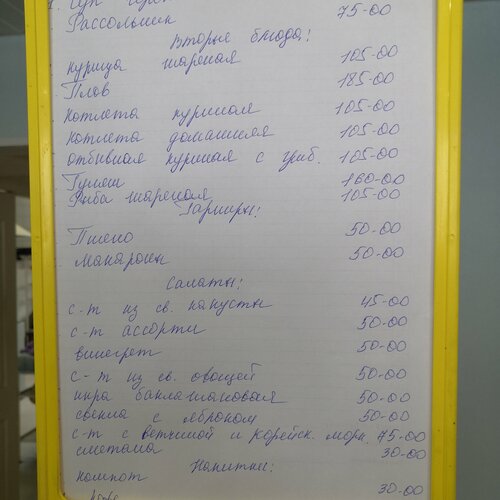 1. Суп
Рассольник 75-00
Вторые блюда:
курица жареная 105-00
Плов 185-00
котлета куриная 105-00
котлета домашняя 105-00
отбивная куриная с гриб. 105-00
Гуляш 160-00
Рыба жареная 105-00
Гарниры:
Пшено 50-00
макароны 50-00
Салаты:
с-т из св. капусты 45-00
с-т ассорти 50-00
винегрет 50-00
с-т из св. овощей 50-00
икра баклажановая 50-00
свекла с яблоком 50-00
с-т с ветчиной и корейск. морк. 75-00
сметана 30-00
Напитки:
компот 30-00